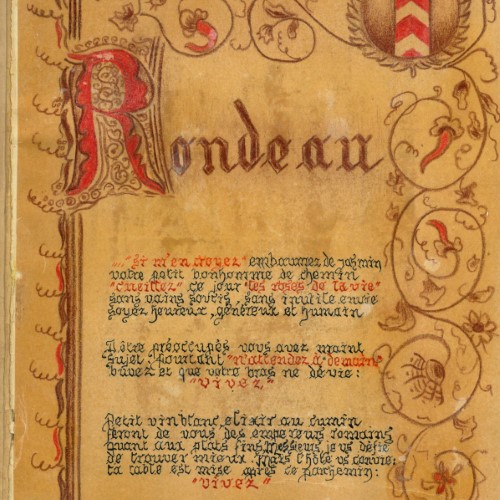 Rondeau
..."Si m'en croyez" embaumez de jasmin
votre petit bonhomme de chemin
"cueillez" ce jour "les roses de la vie"
sans vains soucis, sans inutile envie
soyez heureux, généreux et humain
A être préoccupés vous avez maint
sujet: Pourtant "n'attendez à demain"
buvez et que votre bras ne dévie:
"VIVEZ"
Petit vin blanc, elixir au cumin
feront de vous des empereurs romains
quant aux plats fins, messieurs, je vs défie
de trouver mieux. Mais l'hôte vs convie:
la table est mise après ce parchemin:
"vivez"